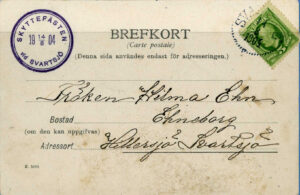 SKYTTEFÄSTEN
19 04
vid SVARTSJÖ
BREFKORT
(Carte postale)
(Denna sida användes endast för adresseringen.)
Fröken Hilma Ehn
Bostad Ehneborg
(om den kan uppgifvas)
Adressort Hilleshög Svartsjö